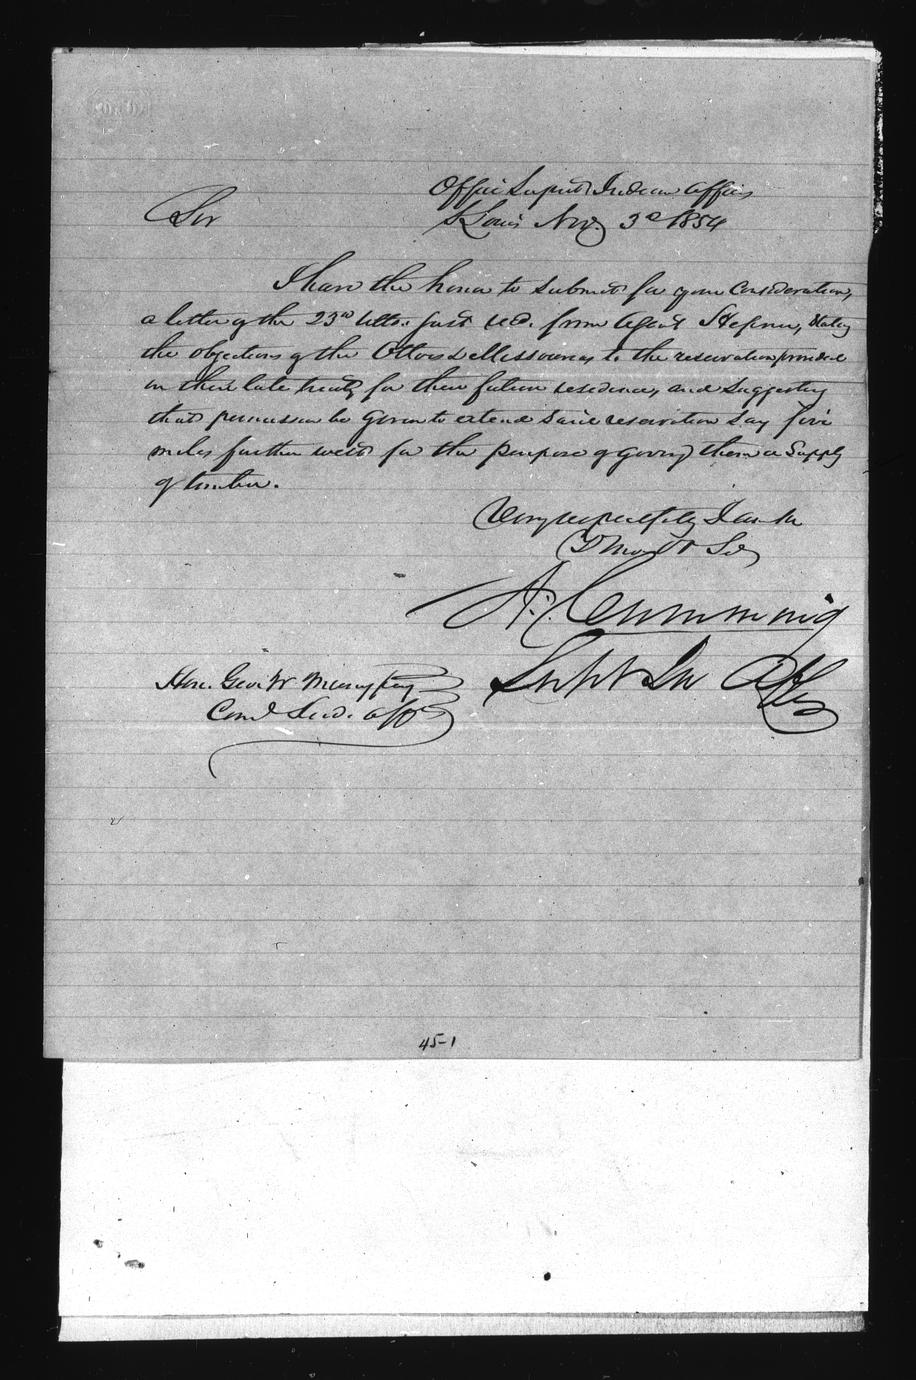 Office Supt Indian Affairs
St Louis Nov. 3d 1854
Sir
I have the honor to submit for your consideration,
a letter of the 23rd ulto. just recd. from Agent Hepner, stating
the objections of the Ottoes & Missourias to the reservation provided
in their late treaty for their future residence, and suggesting
that permission be given to extend said reservation say five
miles further west for the purpose of giving them a supply
of timber.
Very respectfully I am Sir
Yr Mo. Obt Svt
A. Cumming
Supt In Affrs
Hon. Geo. W Manypenny
Comr Ind. Affrs
45-1